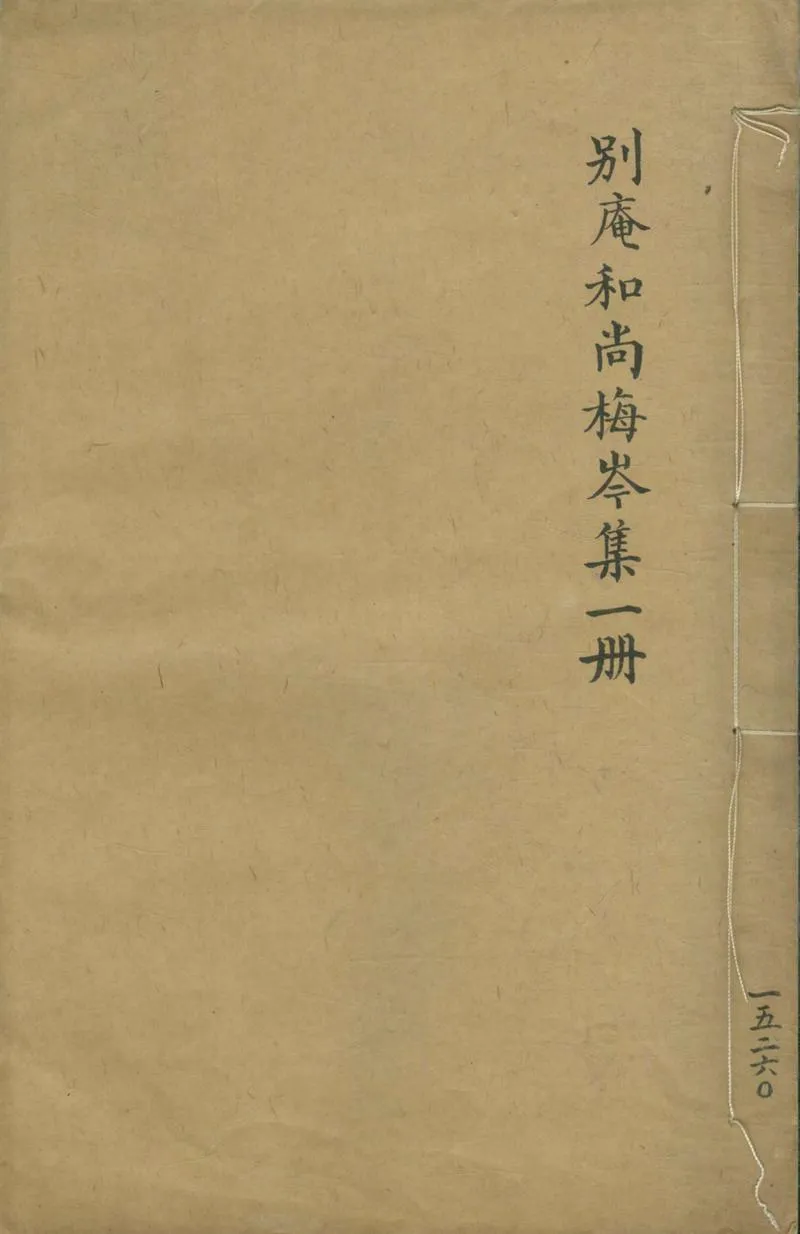 别庵和尚梅岑集一册
一五二六〇